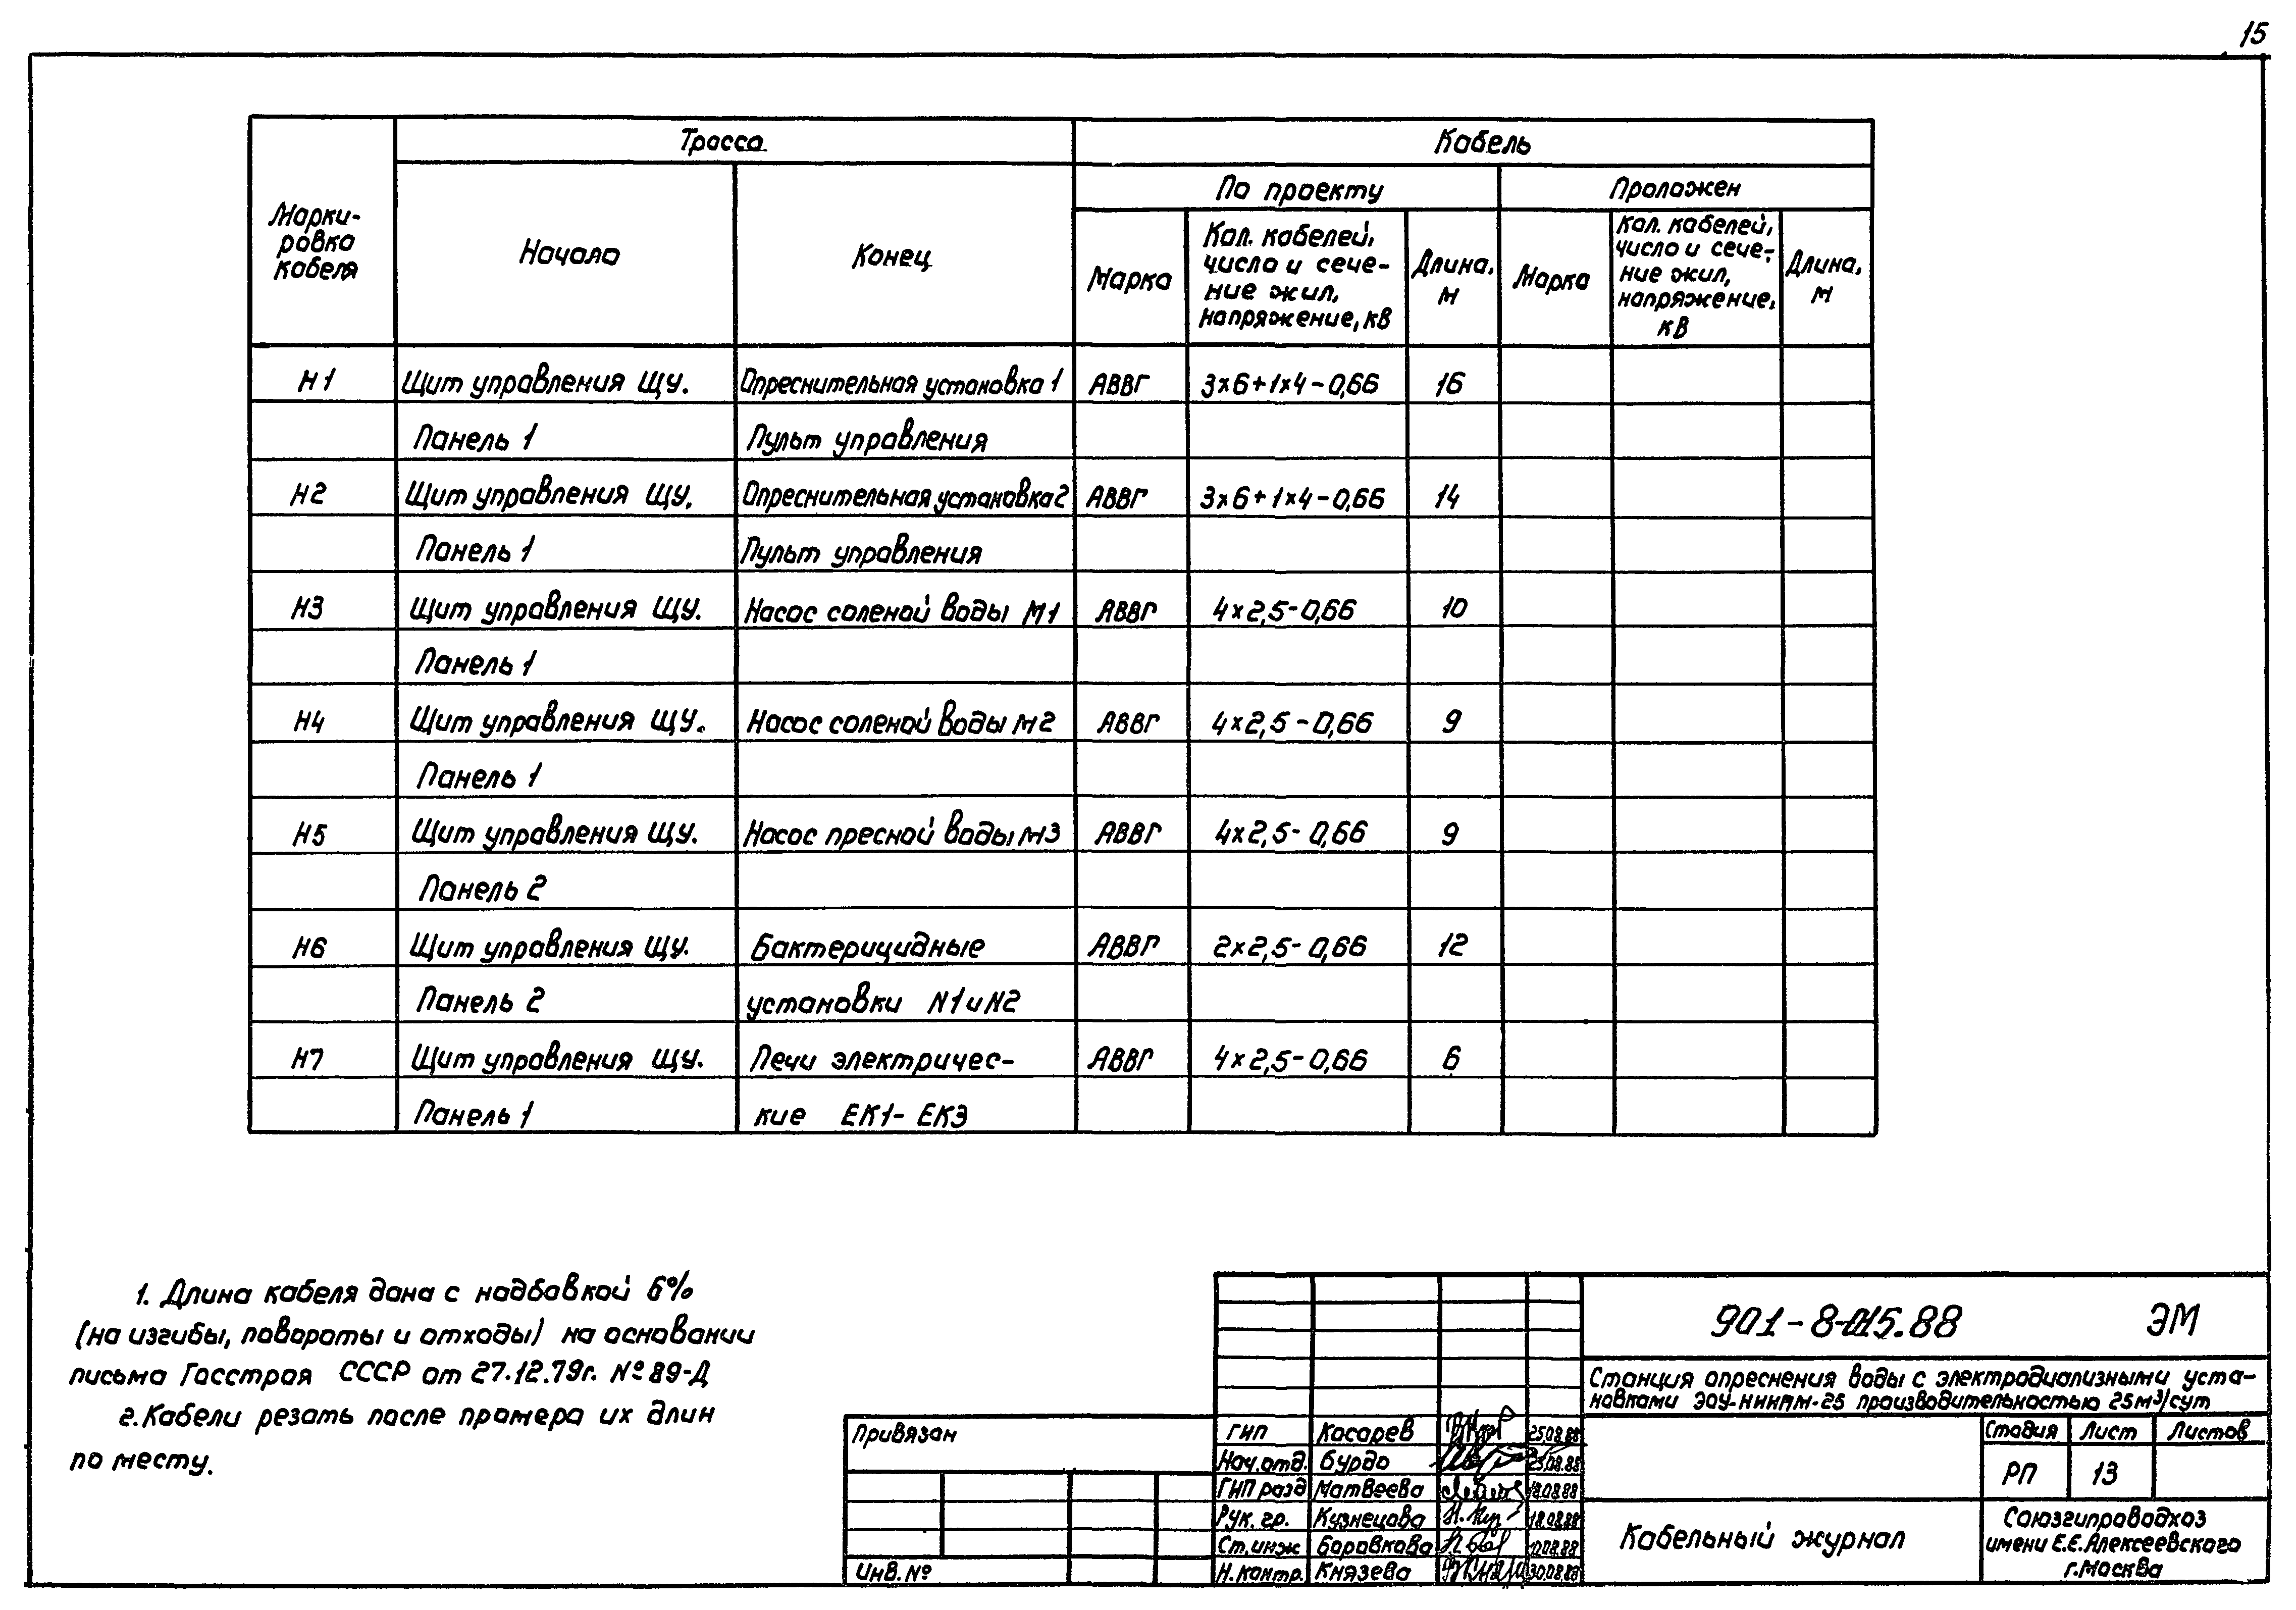 15
Трасса
Кабель
По проекту
Проложен
Марки-
ровка
кабеля
Начало
Конец
Марка
Кол. кабелей,
число и сече-
ние жил,
напряжение, кВ
Длина,
м
Марка
Кол. кабелей,
число и сече-
ние жил,
напряжение,
кВ
Длина,
м
Н1 Щит управления ЩУ. Опреснительная установка 1 АВВГ 3×6+1×4-0,66 16
Панель 1 Пульт управления
Н2 Щит управления ЩУ. Опреснительная установка 2 АВВГ 3×6+1×4-0,66 14
Панель 1 Пульт управления
Н3 Щит управления ЩУ. Насос соленой воды М1 АВВГ 4×2,5-0,66 10
Панель 1
Н4 Щит управления ЩУ. Насос соленой воды М2 АВВГ 4×2,5-0,66 9
Панель 1
Н5 Щит управления ЩУ. Насос пресной воды М3 АВВГ 4×2,5-0,66 9
Панель 2
Н6 Щит управления ЩУ. Бактерицидные АВВГ 2×2,5-0,66 12
Панель 2 установки N1 и N2
Н7 Щит управления ЩУ. Печи электричес- АВВГ 4×2,5-0,66 6
Панель 1 кие ЕК1-ЕК3
1. Длина кабеля дана с надбавкой 6%
(на изгибы, повороты и отходы) на основании
письма Госстроя СССР от 27.12.79г. №89-Д
2. Кабели резать после промера их длин
по месту.
Привязан
Инв. №
ГИП Косарев 25.08.88
Нач. отд. Бурдо 25.08.88
ГИП разд Матвеева 18.08.88
Рук. гр. Кузнецова 18.08.88
Ст. инж Боровкова 10.08.88
Н. контр. Князева 30.08.88
901-8-015.88 ЭМ
Станция опреснения воды с электродиализными уста-
новками ЭОУ-НИИПМ-25 производительностью 25м³/сут
Стадия Лист Листов
РП 13
Кабельный журнал
Союзгипроводхоз
имени Е.Е.Алексеевского
г.Москва